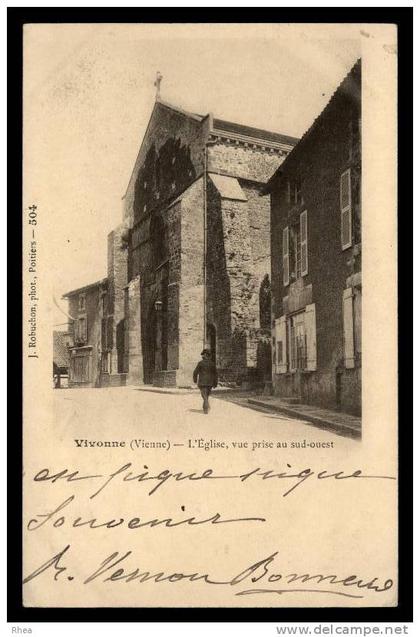 J. Robuchon, phot., Poitiers — 504
Vivonne (Vienne) — L'Église, vue prise au sud-ouest
en pique nique
Souvenir
Vernon Bonneau
Rhea
www.delcampe.net